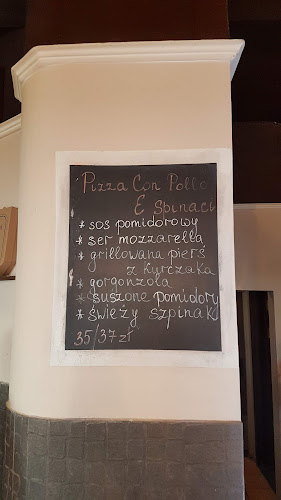 Pizza Con Pollo
E Spinaci
* sos pomidorowy
* ser mozzarella
* grillowana pierś
z kurczaka
* gorgonzola
* suszone pomidory
* świeży szpinak
35/37 zł